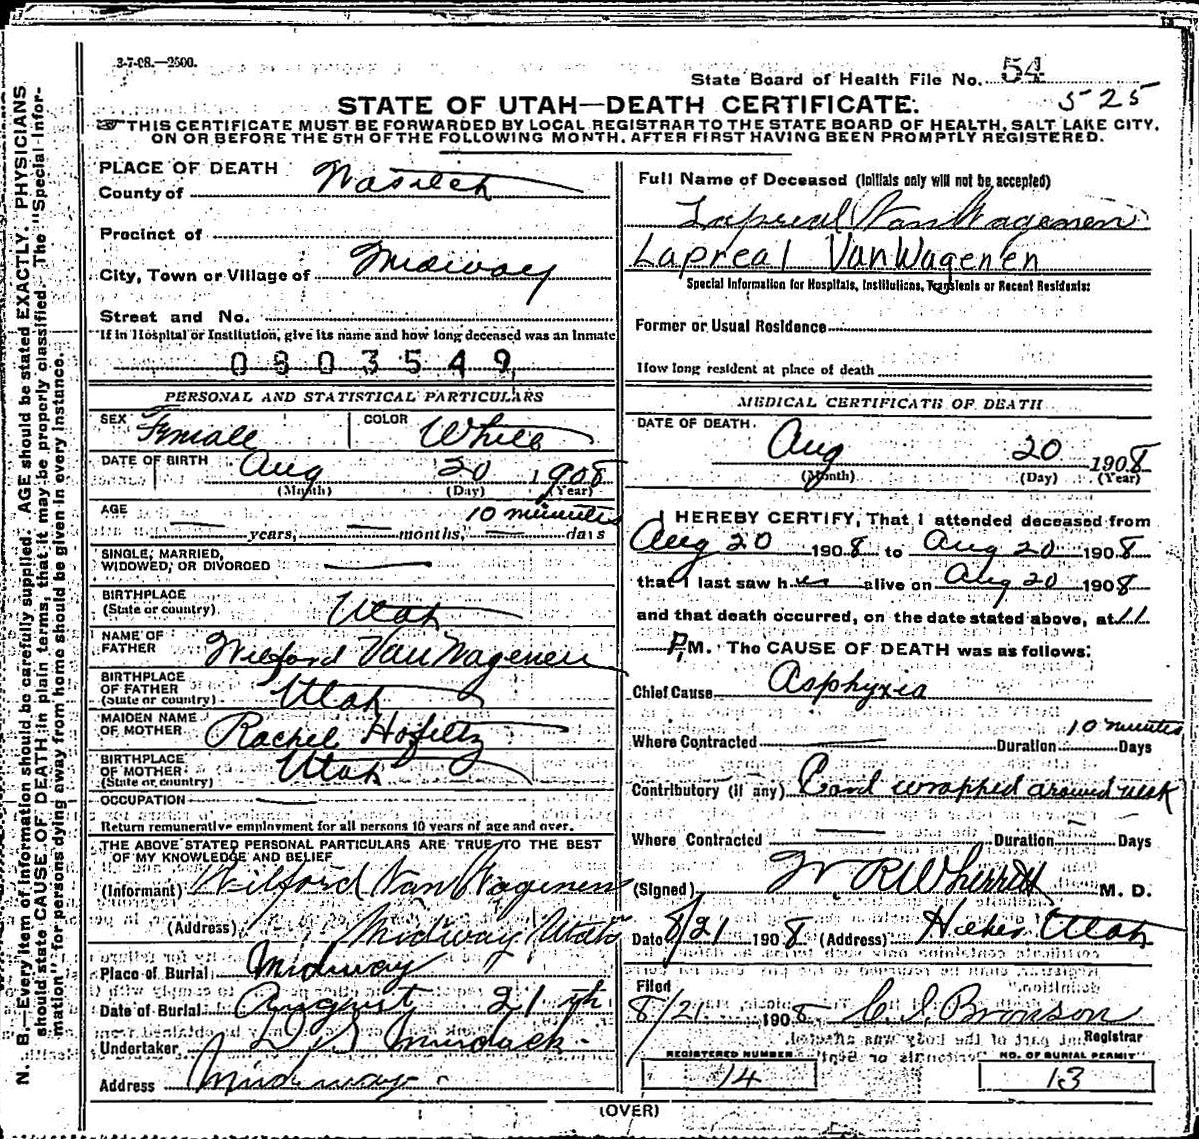 3-7-08.—2500.
State Board of Health File No. 54
525
STATE OF UTAH—DEATH CERTIFICATE.
THIS CERTIFICATE MUST BE FORWARDED BY LOCAL REGISTRAR TO THE STATE BOARD OF HEALTH, SALT LAKE CITY,
ON OR BEFORE THE 5TH OF THE FOLLOWING MONTH, AFTER FIRST HAVING BEEN PROMPTLY REGISTERED.
N. B.—Every item of information should be carefully supplied. AGE should be stated EXACTLY. PHYSICIANS
should state CAUSE OF DEATH in plain terms, that it may be properly classified. The "Special Infor-
mation" for persons dying away from home should be given in every instance.
PLACE OF DEATH
County of Wasatch
Precinct of
City, Town or Village of Midway
Street and No.
If in Hospital or Institution, give its name and how long deceased was an Inmate
0803549
PERSONAL AND STATISTICAL PARTICULARS
SEX Female COLOR White
DATE OF BIRTH Aug 20 1908
(Month) (Day) (Year)
AGE 10 minutes
years, months, days
SINGLE, MARRIED,
WIDOWED, OR DIVORCED
BIRTHPLACE
(State or country) Utah
NAME OF
FATHER Wilford Van Wagenen
BIRTHPLACE
OF FATHER
(State or country) Utah
MAIDEN NAME
OF MOTHER Rachel
BIRTHPLACE
OF MOTHER
(State or country) Utah
OCCUPATION
Return remunerative employment for all persons 10 years of age and over.
THE ABOVE STATED PERSONAL PARTICULARS ARE TRUE TO THE BEST
OF MY KNOWLEDGE AND BELIEF
(Informant) Wilford Van Wagenen
(Address) Midway Utah
Place of Burial Midway
Date of Burial August 21th
Undertaker Murdock
Address Midway
Full Name of Deceased (Initials only will not be accepted)
Lapreal Van Wagenen
Lapreal VanWagenen
Special Information for Hospitals, Institutions, Transients or Recent Residents:
Former or Usual Residence
How long resident at place of death
MEDICAL CERTIFICATE OF DEATH
DATE OF DEATH.
Aug 20 1908
(Month) (Day) (Year)
I HEREBY CERTIFY, That I attended deceased from
Aug 20 1908 to Aug 20 1908
that I last saw her alive on Aug 20 1908
and that death occurred, on the date stated above, at 11
P.M. The CAUSE OF DEATH was as follows:
Chief Cause Asphyxia
10 minutes
Where Contracted Duration Days
Contributory (if any) Cord wrapped around neck
Where Contracted Duration Days
(Signed) W R Wherritt M. D.
Date 8/21 1908 (Address) Heber Utah
Filed
8/21 1908 C. I. Bronson
Registrar
REGISTERED NUMBER
14
NO. OF BURIAL PERMIT
13
(OVER)